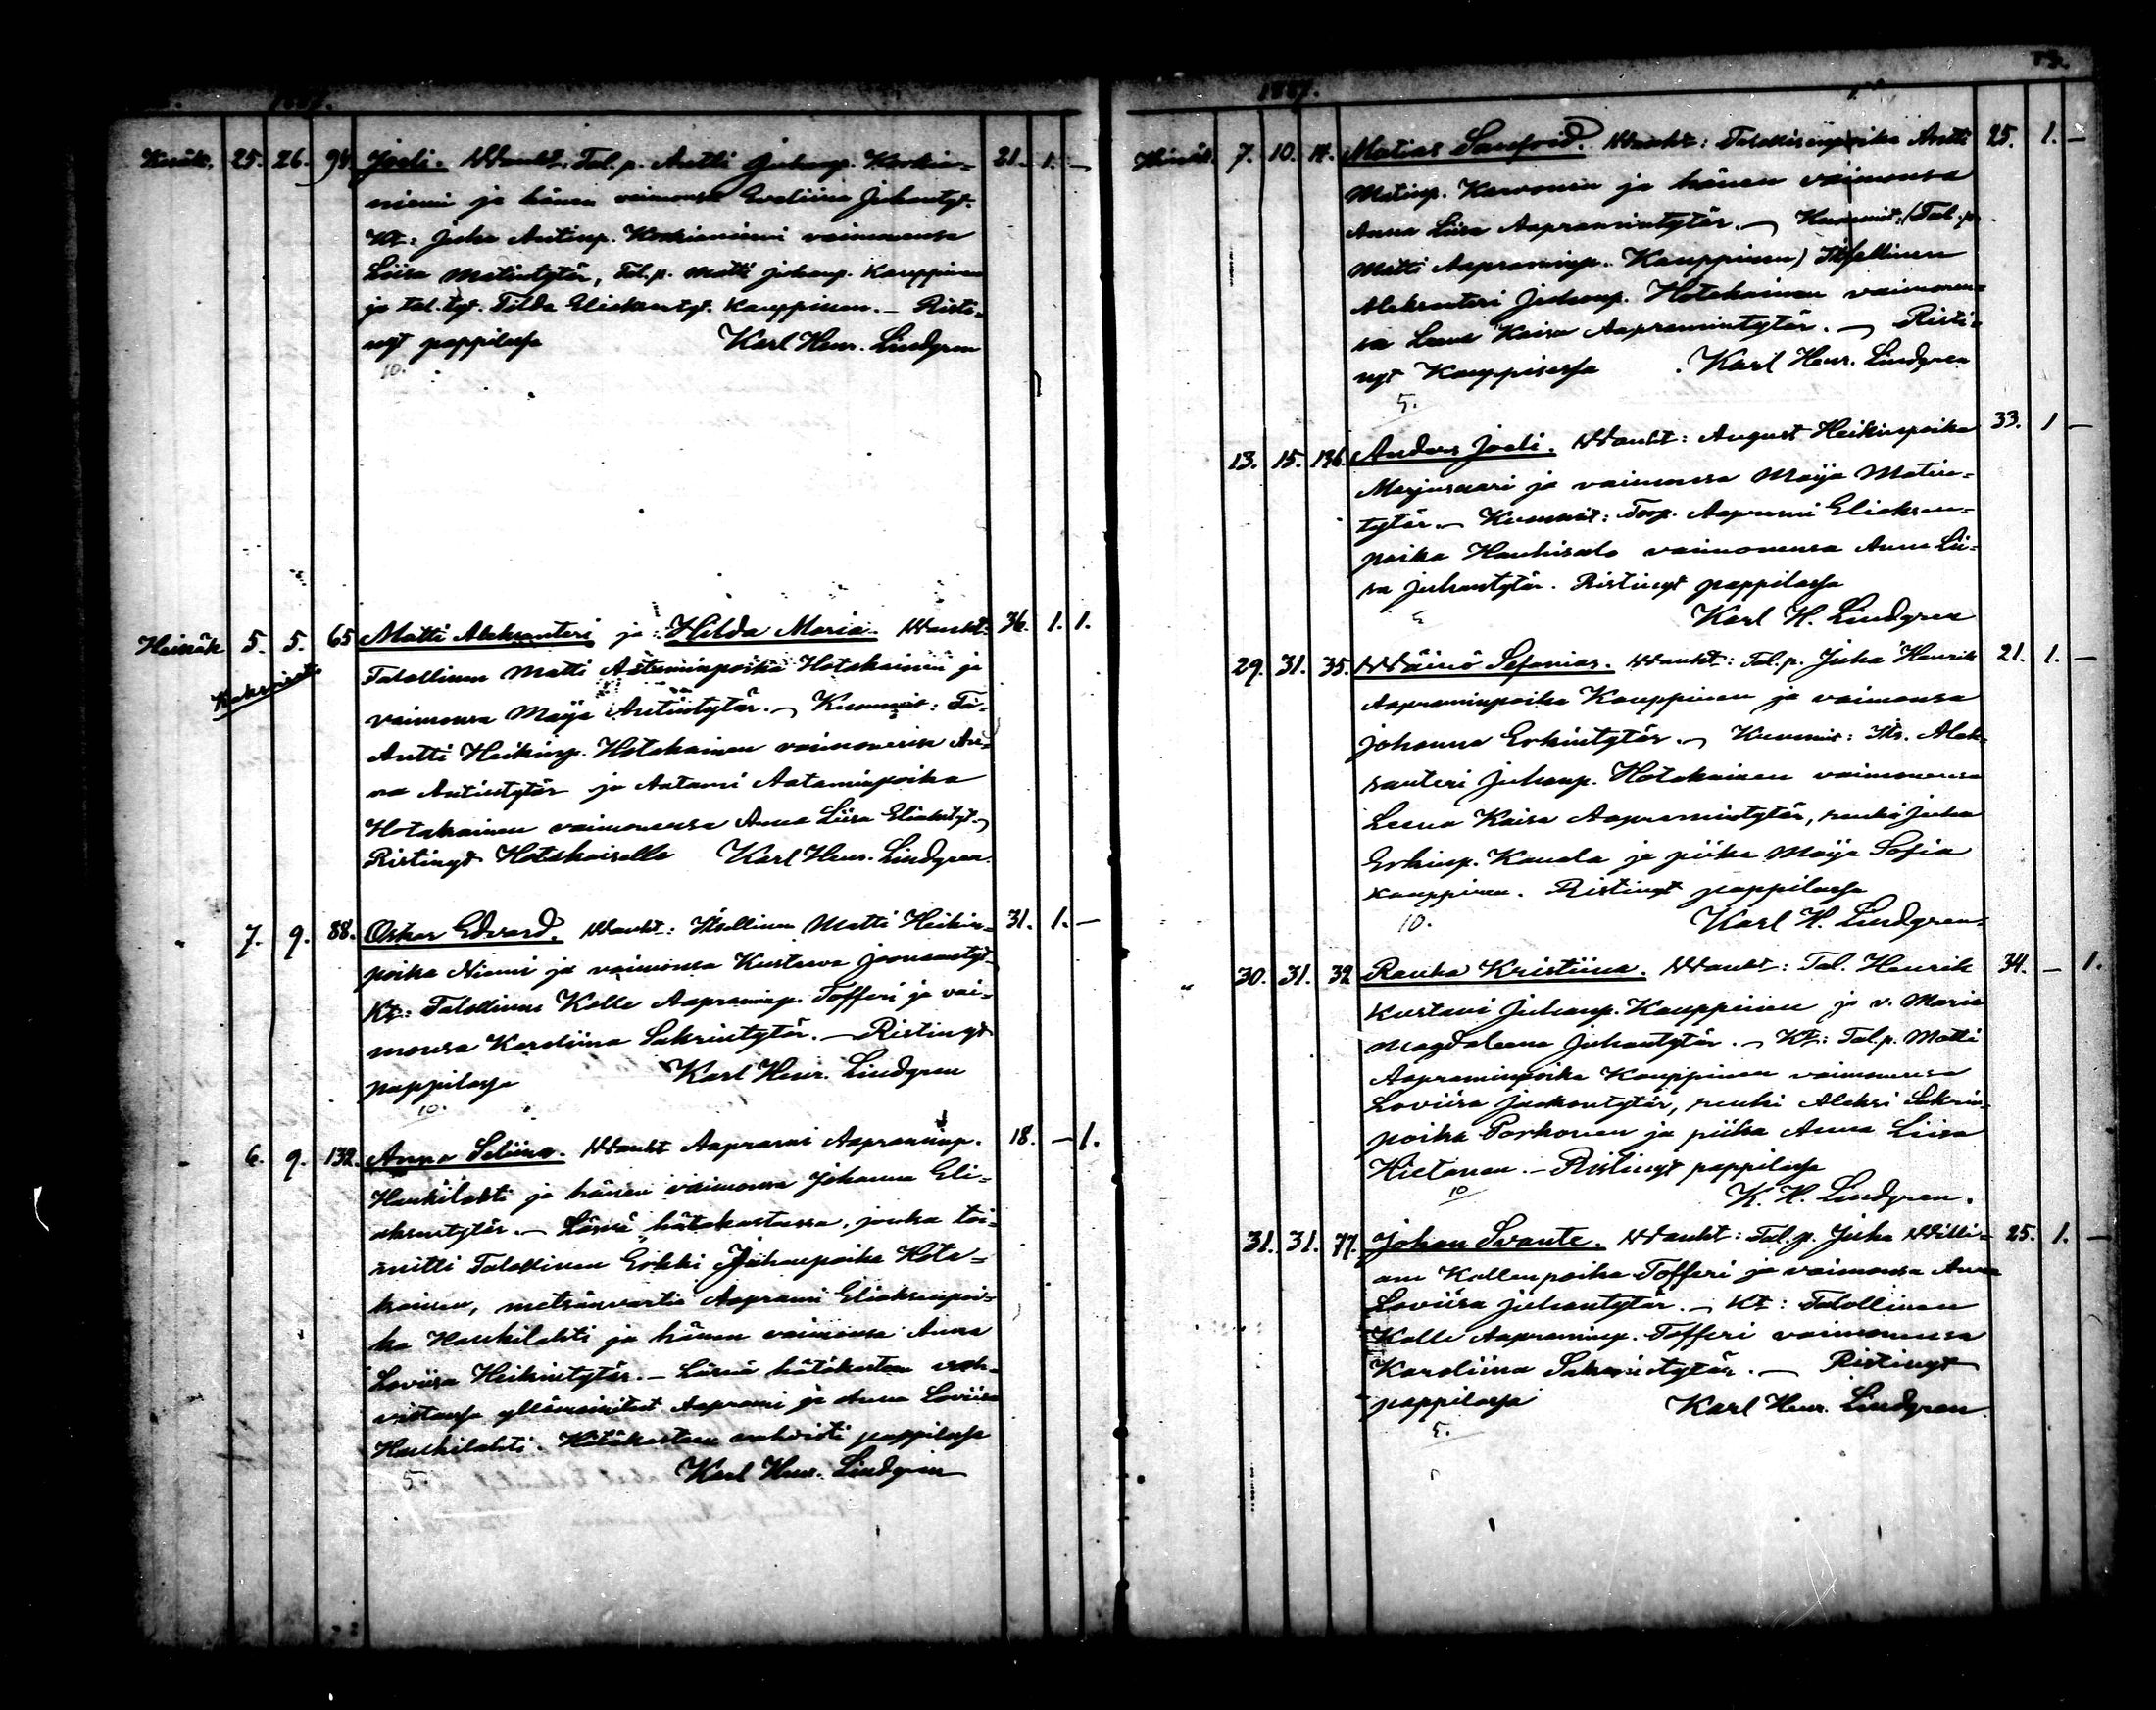 1887.
Kesäk. 25. 26. 94. Joeli. Wanht. Tal. p. Antti Juhanp. Korkia- 21. 1. —
niemi ja hänen vaimonsa Eveliina Juhantyt.
Kt: Juha Antinp. Korkianiemi vaimonensa
Liisa Matintytär, Tal. p. Matti Juhanp. Kauppinen
ja tal. tyt. Tilda Eliaksentyt. Kauppinen. — Risti-
nyt pappilassa Karl Henr. Lindgren
10.
Heinäk. 5. 5. 65 Matti Aleksanteri ja Hilda Maria. Wanht: 36. 1. 1.
Kaksoiset
Talollinen Matti Aataminpoika Hotakainen ja
vaimonsa Maija Antintytär. — Kummit: Ta-
Antti Heikinp. Hotakainen vaimonensa An-
na Antintytär ja Aatami Aataminpoika
Hotakainen vaimonensa Anna Liisa Eliakstyt. —
Ristinyt Hotakaisella Karl Henr. Lindgren.
7. 9. 88. Oskar Edvard. Wanht: Itsellinen Matti Heikin- 31. 1. —
poika Niemi ja vaimonsa Kustaava Joonaantyt.
Kt: Talollinen Kalle Aapraminp. Tofferi ja vai-
monsa Karoliina Sakrintytär. — Ristinyt
pappilassa Karl Henr. Lindgren
10.
6. 9. 132. Anna Seliina. Wanht Aaprami Aapraminp. 18. — 1.
Haukilahti ja hänen vaimonsa Johanna Eli-
aksentytär. — Läsnä hätäkasteessa, jonka toi-
mitti Talollinen Erkki Juhanpoika Hota-
kainen, metsänvartia Aaprami Eliaksenpoi-
ka Haukilahti ja hänen vaimonsa Anna
Loviisa Heikintytär. — Läsnä hätäkasteen vah-
vistaessa yllämainitut Aaprami ja Anna Loviisa
Haukilahti. Hätäkasteen vahvisti pappilassa
Karl Henr. Lindgren
5.
1887.
Heinäk. 7. 10. 14. Matias Sanfrid. Wanht: Talollisenpoika Antti 25. 1. —
Matinp. Karvonen ja hänen vaimonsa
Anna Liisa Aapramintytär. — Kummit: (Tal. p.
Matti Aapraminp. Kauppinen) Itsellinen
Aleksanteri Juhanp. Hotakainen vaimonen-
sa Leena Kaisa Aapramintytär. — Risti-
nyt Kauppisessa Karl Henr. Lindgren
5.
13. 15. 136. Anders Joeli. Wanht: August Heikinpoika 33. 1 —
Marjusaari ja vaimonsa Maija Matin-
tytär. — Kummit: Torp. Aaprami Eliaksen-
poika Hauhisalo vaimonensa Anna Lii-
sa Juhantytär. Ristinyt pappilassa
Karl H. Lindgren
29. 31. 35. Wäinö Sefanias. Wanht: Tal. p. Juha Henrik 21. 1. —
Aapraminpoika Kauppinen ja vaimonsa
Johanna Erkintytär. — Kummit: Its. Alek-
santeri Juhanp. Hotakainen vaimonensa
Leena Kaisa Aapramintytär, renki Juha
Erkinp. Kauala ja piika Maija Sofia
Kauppinen. Ristinyt pappilassa
10. Karl H. Lindgren
" 30. 31. 32 Rauha Kristiina. Wanht: Tal. Henrik 34. — 1.
Kustavi Juhanp. Kauppinen ja v. Maria
Magdaleena Juhantytär. — Kt: Tal. p. Matti
Aapraminpoika Kauppinen vaimonensa
Loviisa Jaakontytär, renki Aleksi Sakrin-
poika Porkonen ja piika Anna Liisa
Hietanen. — Ristinyt pappilassa
10 K. H. Lindgren.
31. 31. 77. Johan Svante. Wanht: Tal. p. Juha Willi- 25. 1. —
am Kallenpoika Tofferi ja vaimonsa Anna
Loviisa Juhantytär. — Kt: Talollinen
Kalle Aapraminp. Tofferi vaimonensa
Karoliina Sakrintytär. — Ristinyt
pappilassa Karl Henr. Lindgren
5.